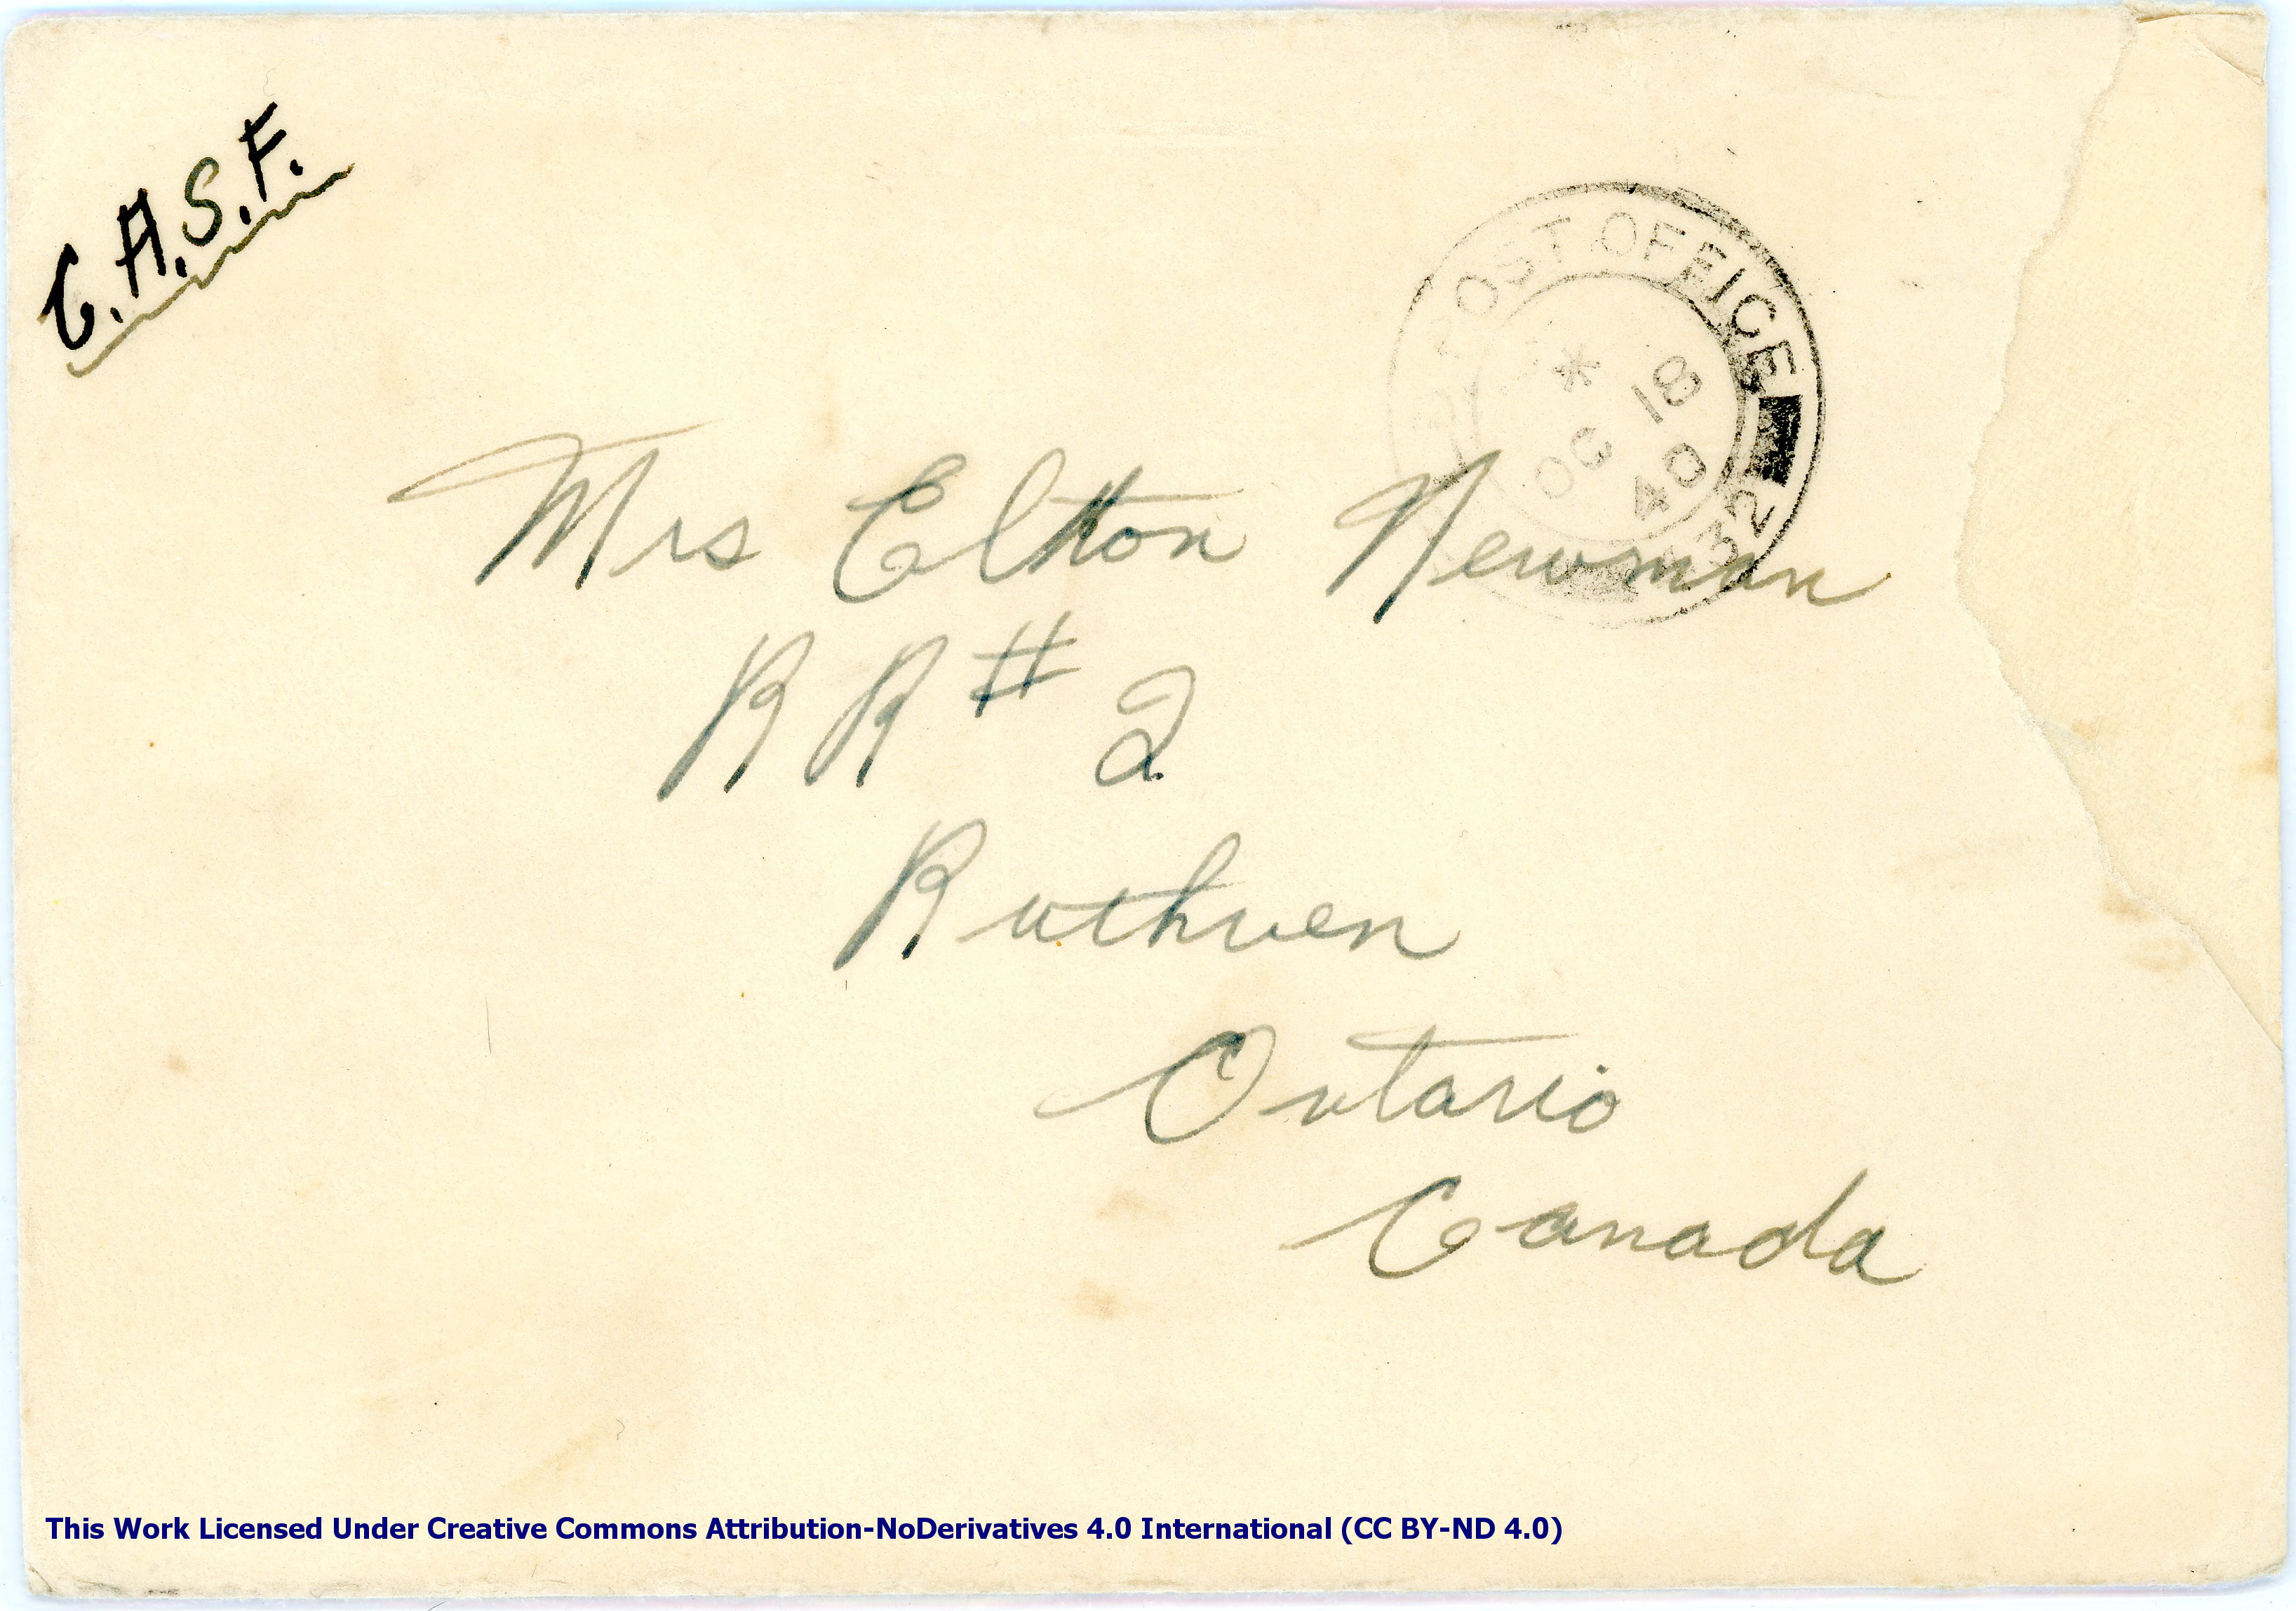 C.A.S.F.
POST OFFICE
*
OC 18
40
132
Mrs Elton Newman
RR # 2
Ruthven
Ontario
Canada
This Work Licensed Under Creative Commons Attribution-NoDerivatives 4.0 International (CC BY-ND 4.0)